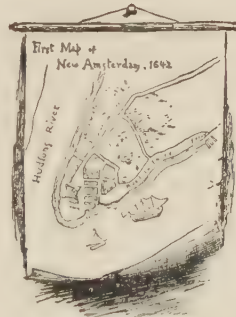 First Map of
New Amsterdam, 1642
Hudsons River